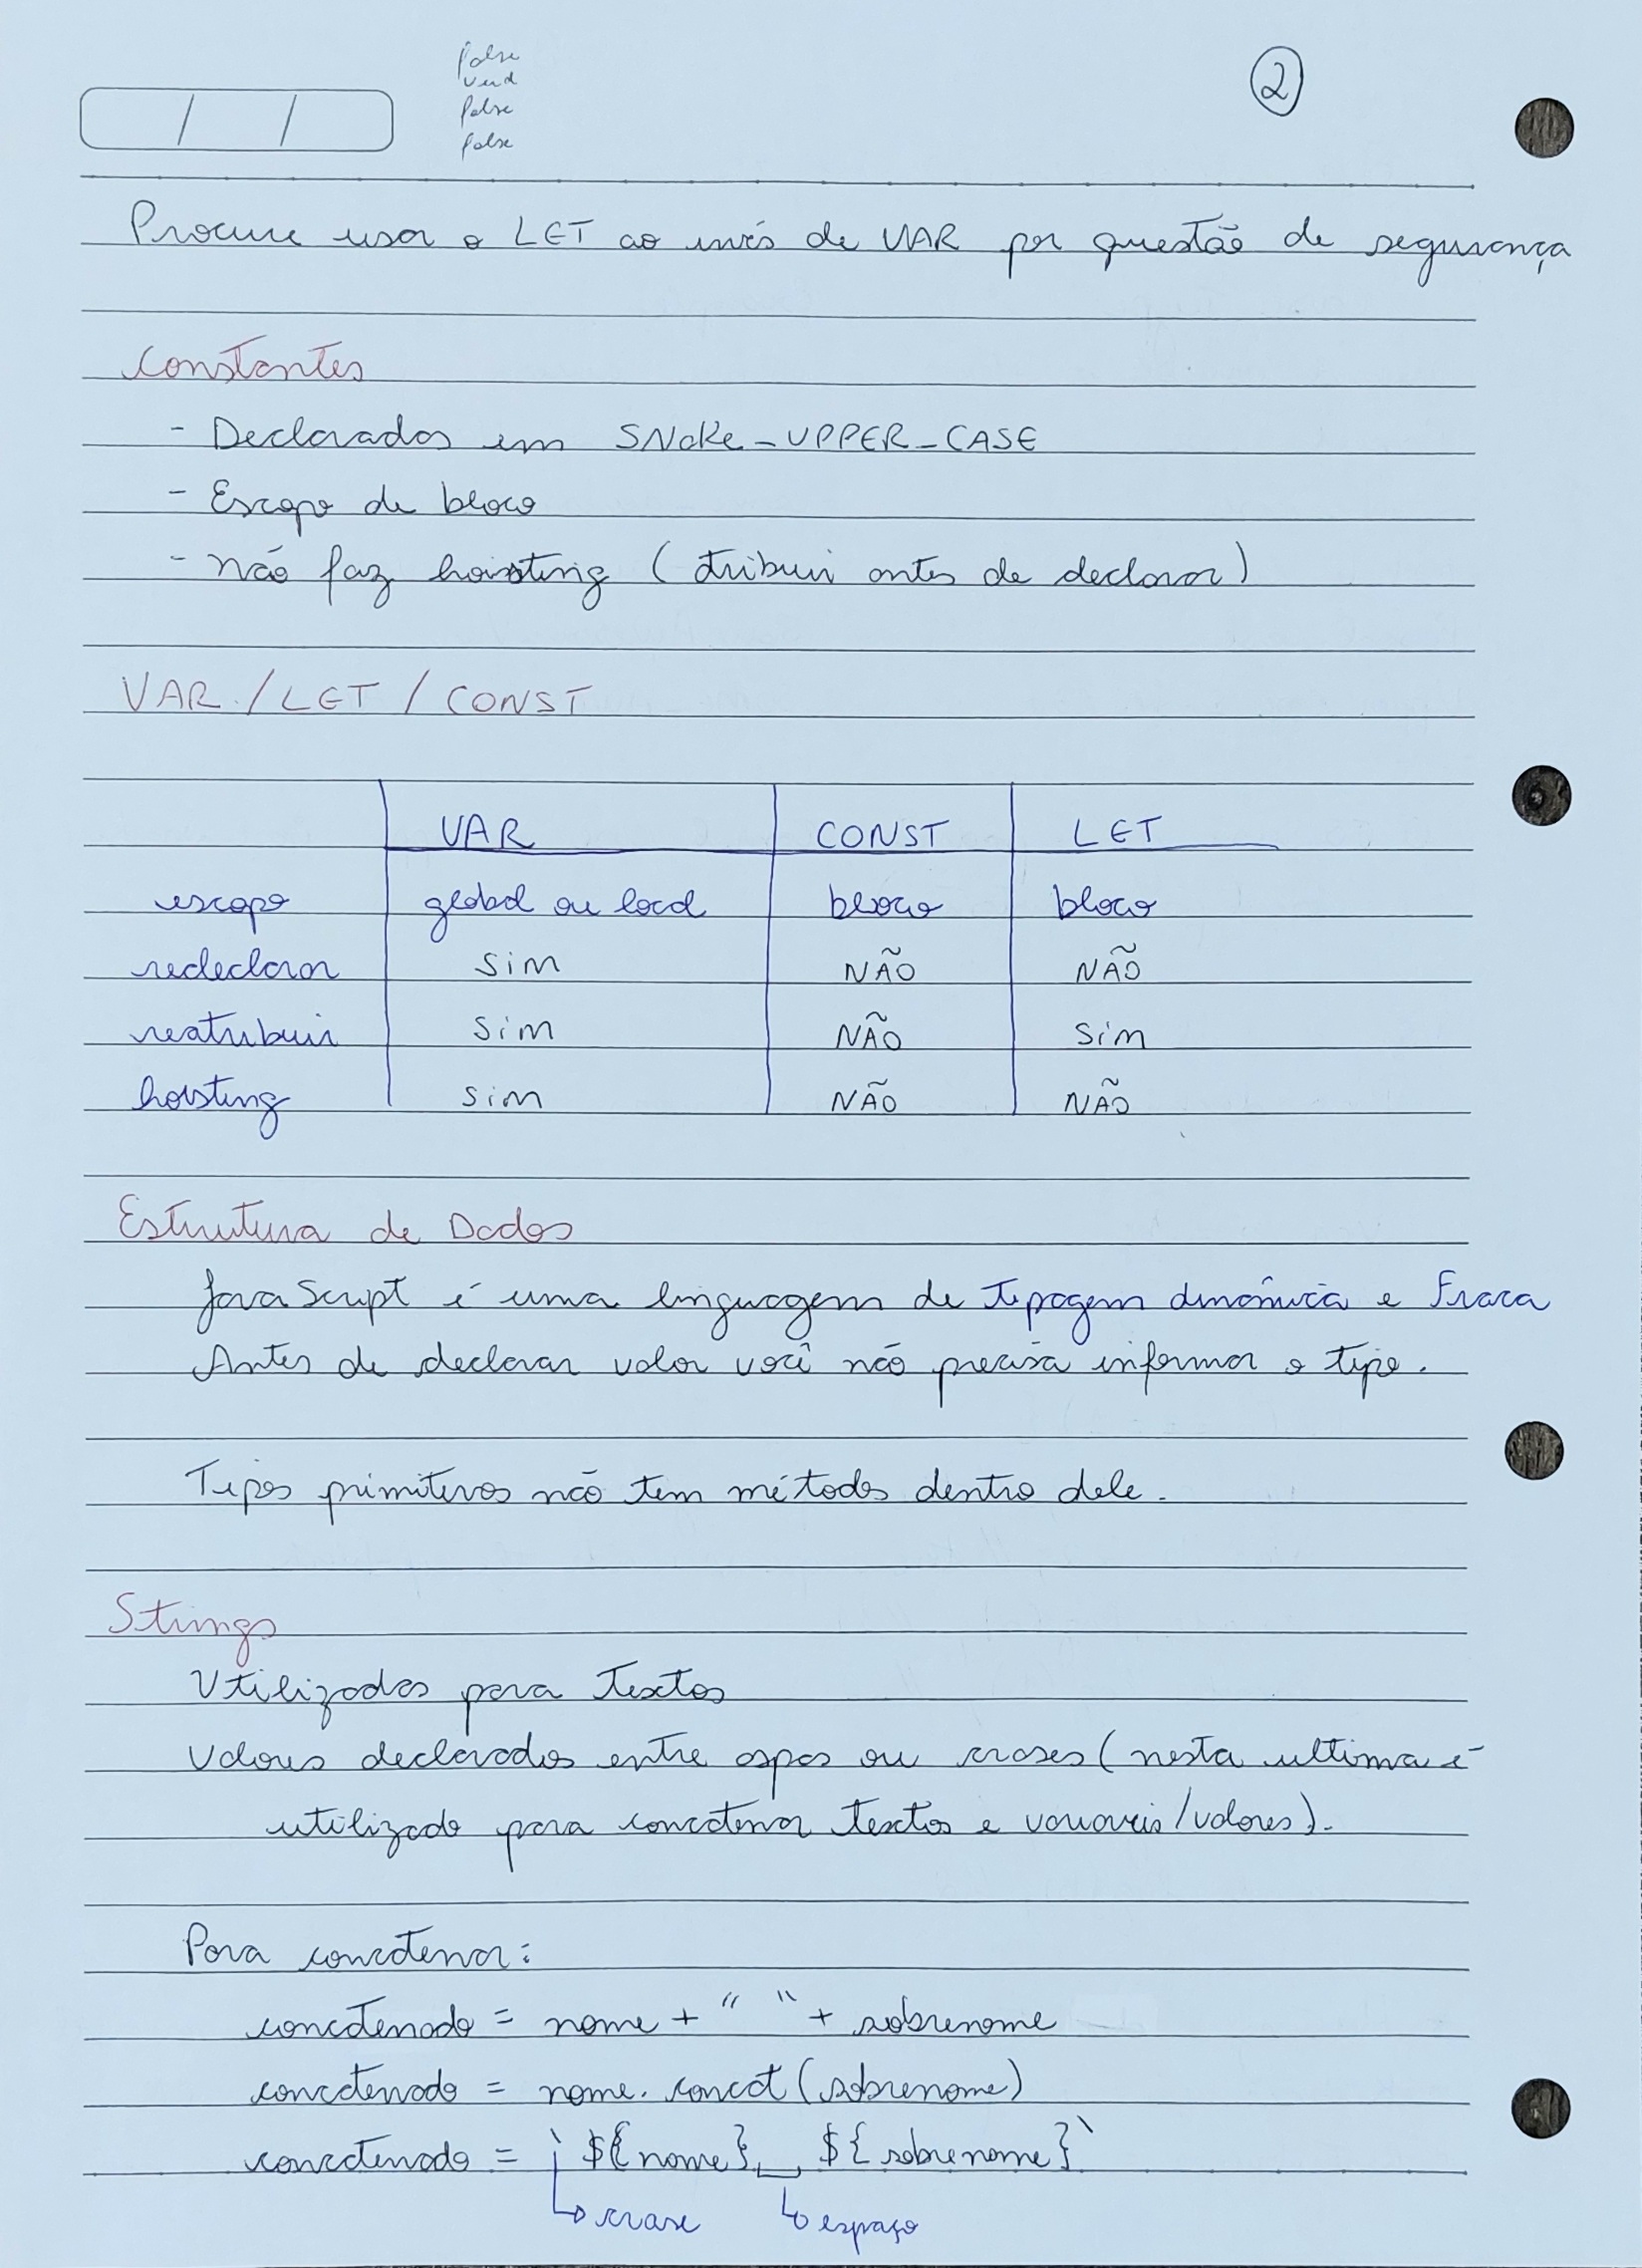 false
verd
false
false
2
Procure usar o LET ao invés de VAR por questão de segurança
Constantes
- Declarados em SNake_UPPER_CASE
- Escopo de bloco
- não faz hoisting (tribuir antes de declarar)
VAR / LET / CONST
VAR CONST LET
escopo global ou local bloco bloco
redeclarar Sim NÃO NÃO
reatribuir Sim NÃO Sim
hoisting Sim NÃO NÃO
Estrutura de Dados
JavaScript é uma linguagem de tipagem dinâmica e Fraca
Antes de declarar valor você não precisa informar o tipo.
Tipos primitivos não tem métodos dentro dele.
Strings
Utilizados para Textos
Valores declarados entre aspas ou crases (nesta ultima é
utilizado para concatenar textos e variaveis/valores).
Para concatenar:
concatenado = nome + " " + sobrenome
concatenado = nome.concat(sobrenome)
concatenado = `${nome} ${sobrenome}`
crase espaço